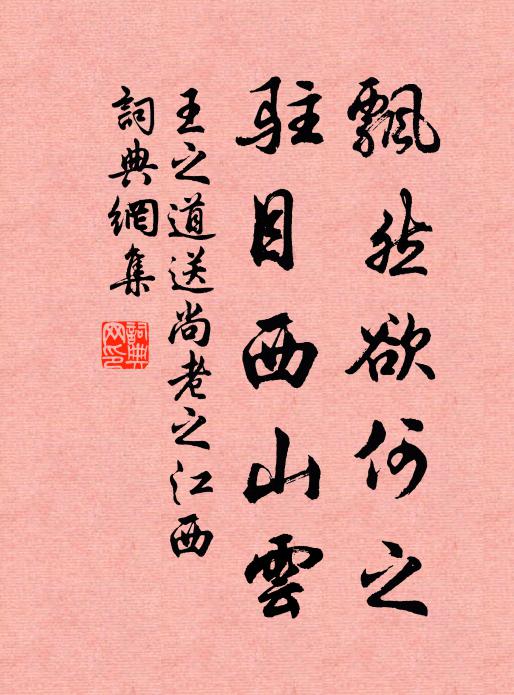 飄然欲何之
駐目西山雲
王之道送尚老之江西
詞典網集
詞典網印